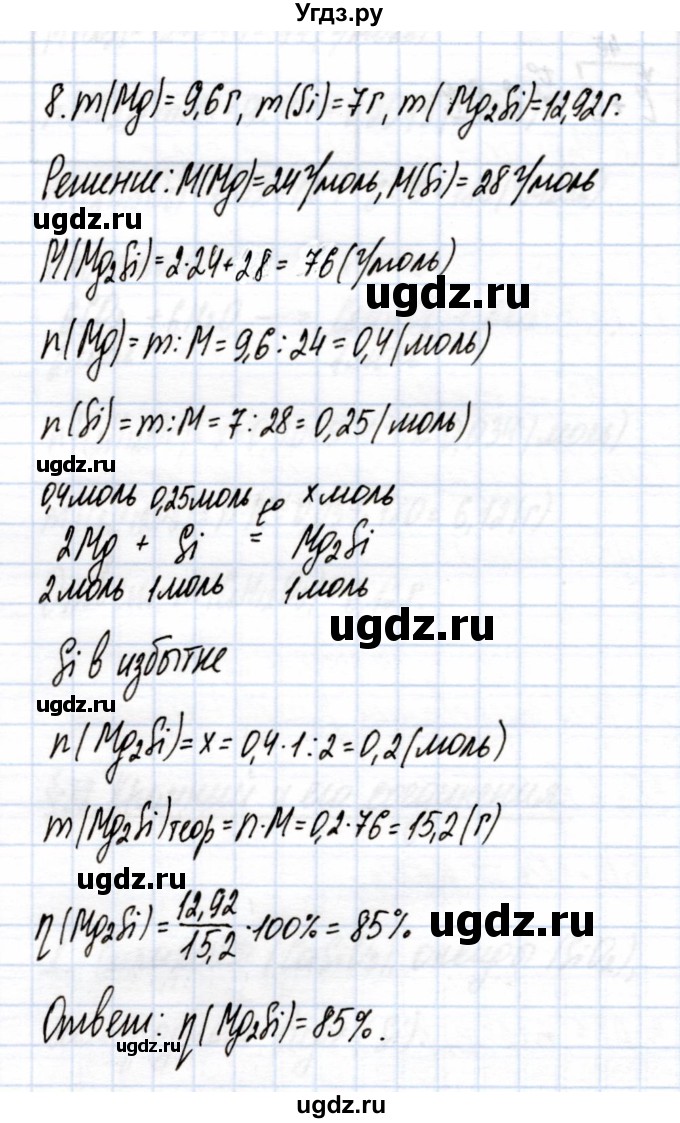 Угдз.ру
8. m(Mg)=9,6г, m(Si)=7г, m(Mg₂Si)=12,92г.
Решение: M(Mg)=24 г/моль, M(Si)=28 г/моль
ugdz.ru
M(Mg₂Si)=2·24+28=76(г/моль)
ugdz.ru
n(Mg)=m:M=9,6:24=0,4(моль)
n(Si)=m:M=7:28=0,25(моль)
ugdz.ru
0,4моль 0,25моль t° x моль
2Mg + Si = Mg₂Si
2моль 1моль 1моль
ugdz.ru
Si в избытке
ugdz.ru
n(Mg₂Si)=x=0,4·1:2=0,2(моль)
m(Mg₂Si)теор=n·M=0,2·76=15,2(г)
ugdz.ru
η(Mg₂Si)=12,92/15,2·100%=85%.
ugdz.ru
Ответ: η(Mg₂Si)=85%.
ugdz.ru
ugdz.ru